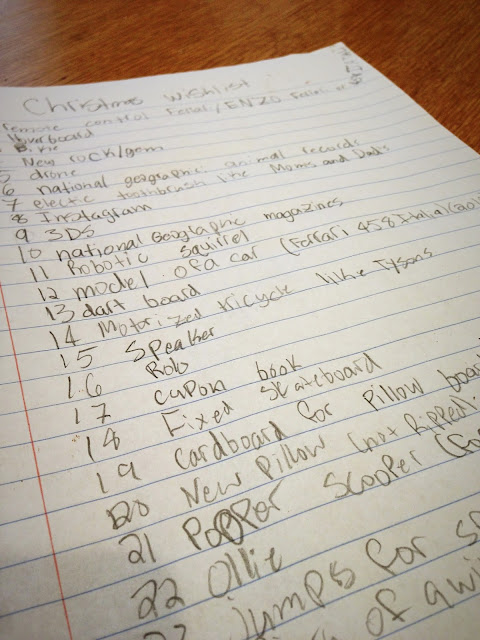 Christmas wishlist
remote control Ferrari/ENZO Ferrari
Hoverboard
Bike
New rock/gem
drone
6 national geographic animal records
7 electic toothbrush like Moms and Dad's
8 Instagram
9 3DS
10 national Geographic magazines
11 Robotic squirrel
12 model of a car (Ferrari 458 Italia)(201
13 dart board
14 Motorized tricycle like Tysons
15 Speaker
16 Rob
17 cupon book
18 Fixed skateboard
19 cardboard for pillow board
20 New Pillow (not Ripped)
21 Pooper Scooper
22 Ollie
jumps for
of